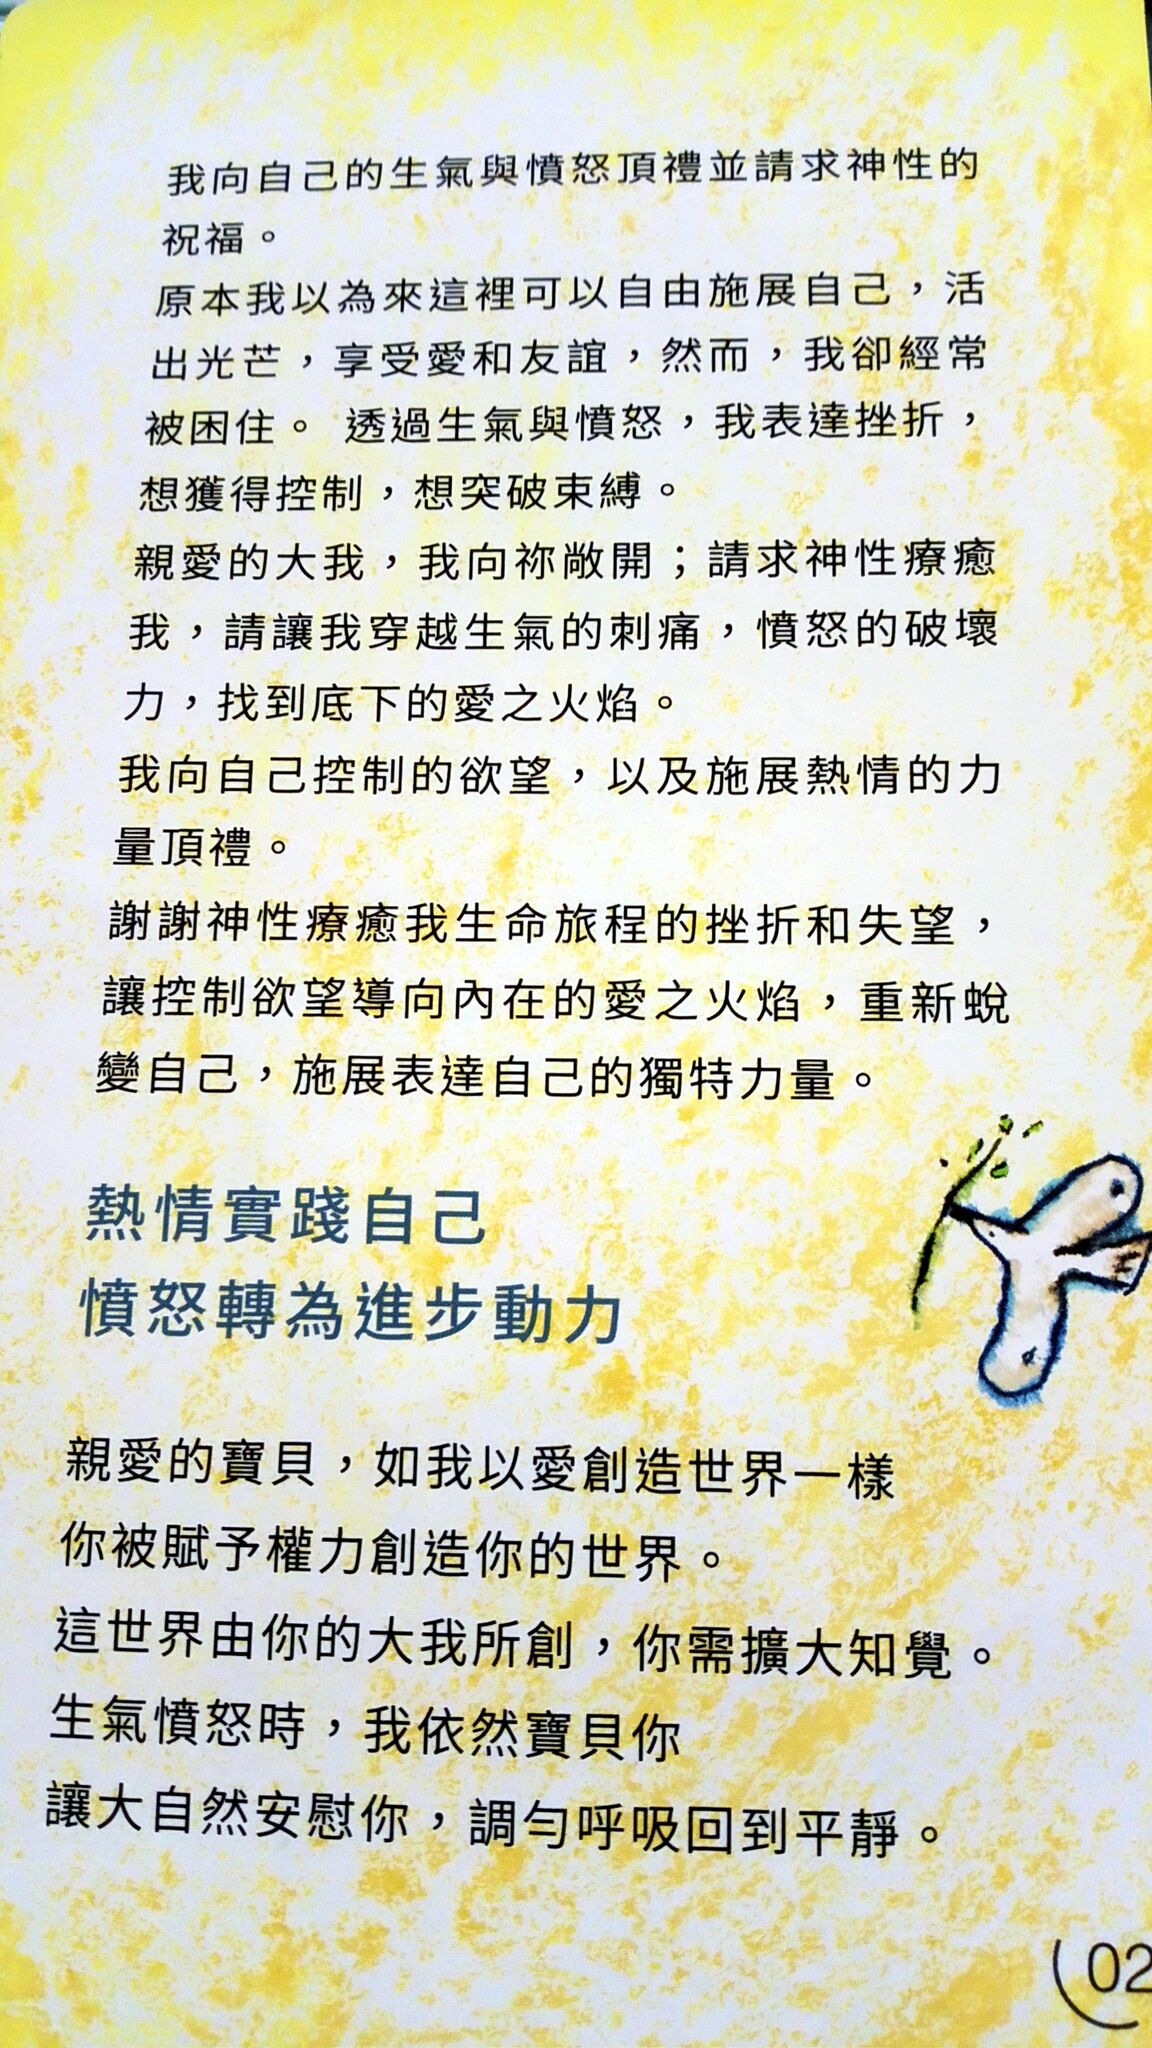 我向自己的生氣與憤怒頂禮並請求神性的
祝福。
原本我以為來這裡可以自由施展自己，活
出光芒，享受愛和友誼，然而，我卻經常
被困住。 透過生氣與憤怒，我表達挫折，
想獲得控制，想突破束縛。
親愛的大我，我向祢敞開；請求神性療癒
我，請讓我穿越生氣的刺痛，憤怒的破壞
力，找到底下的愛之火焰。
我向自己控制的欲望，以及施展熱情的力
量頂禮。
謝謝神性療癒我生命旅程的挫折和失望，
讓控制欲望導向內在的愛之火焰，重新蛻
變自己，施展表達自己的獨特力量。
熱情實踐自己
憤怒轉為進步動力
親愛的寶貝，如我以愛創造世界一樣
你被賦予權力創造你的世界。
這世界由你的大我所創，你需擴大知覺。
生氣憤怒時，我依然寶貝你
讓大自然安慰你，調勻呼吸回到平靜。
02